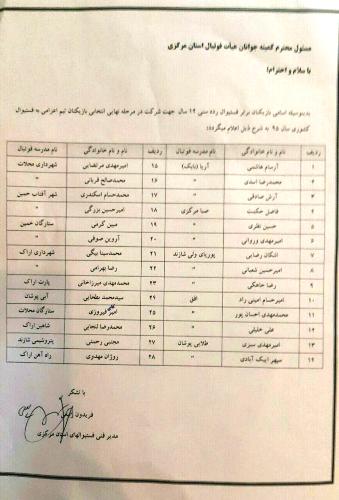 مسئول محترم کمیته جوانان هیأت فوتبال استان مرکزی
با سلام و احترام؛
بدینوسیله اسامی بازیکنان برتر فستیوال رده سنی ۱۲ سال جهت شرکت در مرحله نهایی انتخابی بازیکنان تیم اعزامی به فستیوال
کشوری سال ۹۵ به شرح ذیل اعلام میگردد:
ردیف نام و نام خانوادگی نام مدرسه فوتبال ردیف نام و نام خانوادگی نام مدرسه فوتبال
۱ آرسام هاشمی آریا (بابک) ۱۵ امیرمهدی مرتضایی شهرداری محلات
۲ محمدرضا اسدی " ۱۶ محمدصالح قربانی "
۳ آرش صادقی " ۱۷ محمدحسام اسکندری شهر آفتاب خمین
۴ فاضل حکمت صبا مرکزی ۱۸ امیرحسین بزرگی "
۵ حسین نظری " ۱۹ مبین گرمی ستارگان خمین
۶ امیرمهدی وروانی " ۲۰ آروین صوفی "
۷ اشکان رضایی پوریای ولی شازند ۲۱ محمدسینا بیگی شهرداری اراک
۸ امیرحسین شعبانی " ۲۲ رضا بهرامی "
۹ رضا جاهکی " ۲۳ محمدمهدی میرزاخانی پارت اراک
۱۰ امیرحسام امینی راد افق ۲۴ سیدمحمد طحایی آبی پوشان
۱۱ محمدمهدی احسان پور " ۲۵ امیر فیروزی ستارگان محلات
۱۲ علی خلیلی " ۲۶ محمدرضا لنجابی شاهین اراک
۱۳ امیرمهدی سبزی طلایی پوشان ۲۷ مجتبی رحمتی پتروشیمی شازند
۱۴ سپهر ایبک آبادی " ۲۸ روژان مهدوی راه آهن اراک
با تشکر
فریدون
مدیر فنی فستیوالهای استان مرکزی